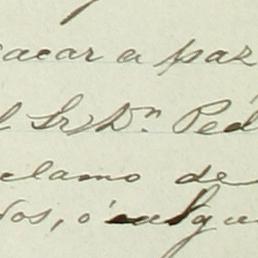 acar a paz
l Sr Dn. Ped
clamo de
dos, ó algu